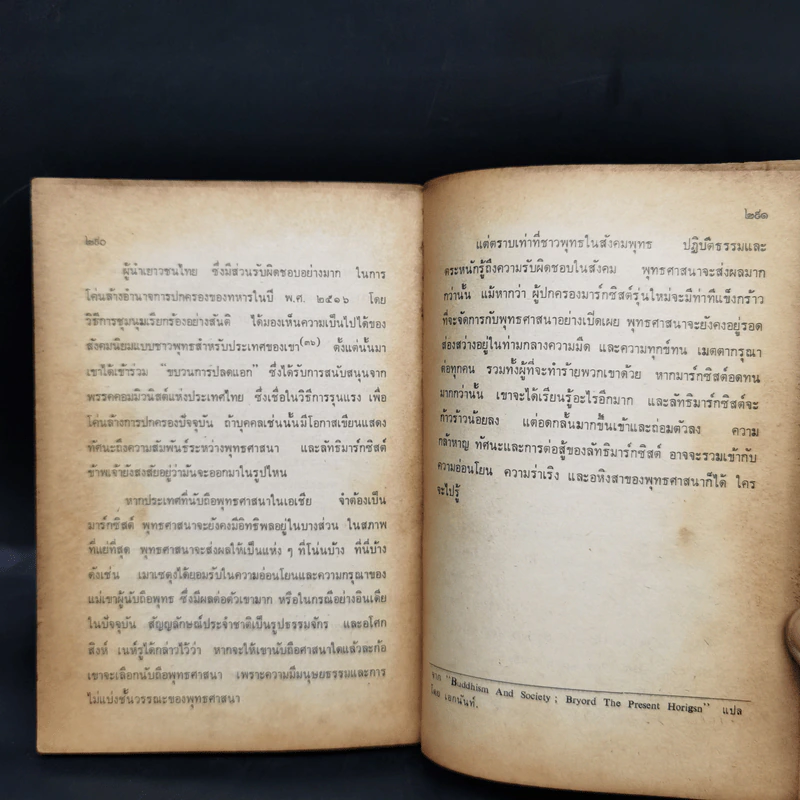 ๒๕๐
ผู้นำเยาวชนไทย ซึ่งมีส่วนรับผิดชอบอย่างมาก ในการ
โค่นล้างอำนาจการปกครองของทหารในปี พ.ศ. ๒๕๑๖ โดย
วิธีการชุมนุมเรียกร้องอย่างสันติ ได้มองเห็นความเป็นไปได้ของ
สังคมนิยมแบบชาวพุทธสำหรับประเทศของเขา(๓๖) ตั้งแต่นั้นมา
เขาได้เข้าร่วม "ขบวนการปลดแอก" ซึ่งได้รับการสนับสนุนจาก
พรรคคอมมิวนิสต์แห่งประเทศไทย ซึ่งเชื่อในวิธีการรุนแรง เพื่อ
โค่นล้างการปกครองปัจจุบัน ถ้าบุคคลเช่นนั้นมีโอกาสเขียนแสดง
ทัศนะถึงความสัมพันธ์ระหว่างพุทธศาสนา และลัทธิมาร์กซิสต์
ข้าพเจ้ายังสงสัยอยู่ว่ามันจะออกมาในรูปไหน
หากประเทศที่นับถือพุทธศาสนาในเอเชีย จำต้องเป็น
มาร์กซิสต์ พุทธศาสนาจะยังคงมีอิทธิพลอยู่ในบางส่วน ในสภาพ
ที่แย่ที่สุด พุทธศาสนาจะส่งผลให้เป็นแห่ง ๆ ที่โน่นบ้าง ที่นี่บ้าง
ดังเช่น เมาเซตุงได้ยอมรับในความอ่อนโยนและความกรุณาของ
แม่เขาผู้นับถือพุทธ ซึ่งมีผลต่อตัวเขามาก หรือในกรณีอย่างอินเดีย
ในปัจจุบัน สัญญลักษณ์ประจำชาติเป็นรูปธรรมจักร และอโศก
สิงห์ เนห์รูได้กล่าวไว้ว่า หากจะให้เขานับถือศาสนาใดแล้วละก้อ
เขาจะเลือกนับถือพุทธศาสนา เพราะความมีมนุษยธรรมและการ
ไม่แบ่งชั้นวรรณะของพุทธศาสนา
๒๕๑
แต่ตราบเท่าที่ชาวพุทธในสังคมพุทธ ปฏิบัติธรรมและ
ตระหนักรู้ถึงความรับผิดชอบในสังคม พุทธศาสนาจะส่งผลมาก
กว่านั้น แม้หากว่า ผู้ปกครองมาร์กซิสต์รุ่นใหม่จะมีท่าทีแข็งกร้าว
ที่จะจัดการกับพุทธศาสนาอย่างเปิดเผย พุทธศาสนาจะยังคงอยู่รอด
ส่องสว่างอยู่ในท่ามกลางความมืด และความทุกข์ทน เมตตากรุณา
ต่อทุกคน รวมทั้งผู้ที่จะทำร้ายพวกเขาด้วย หากมาร์กซิสต์อดทน
มากกว่านั้น เขาจะได้เรียนรู้อะไรอีกมาก และลัทธิมาร์กซิสต์จะ
ก้าวร้าวน้อยลง แต่อดกลั้นมากขึ้นเข้าและถอมตัวลง ความ
กล้าหาญ ทัศนะและการต่อสู้ของลัทธิมาร์กซิสต์ อาจจะรวมเข้ากับ
ความอ่อนโยน ความร่าเริง และอหิงสาของพุทธศาสนาก็ได้ ใคร
จะไปรู้
จาก "Buddhism And Society ; Bryord The Present Horigsn" แปล
โดย เอกนันท์.